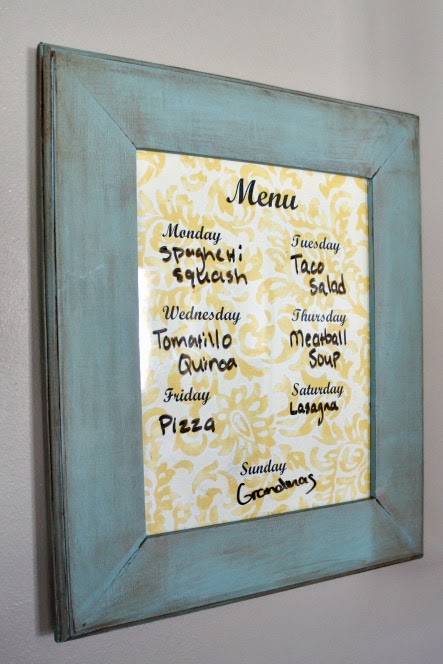 Menu
Monday
Spaghehi
squash
Tuesday
Taco
Salad
Wednesday
Tomatillo
Quinoa
Thursday
Meatball
Soup
Friday
Pizza
Saturday
Lasagna
Sunday
Grandmas